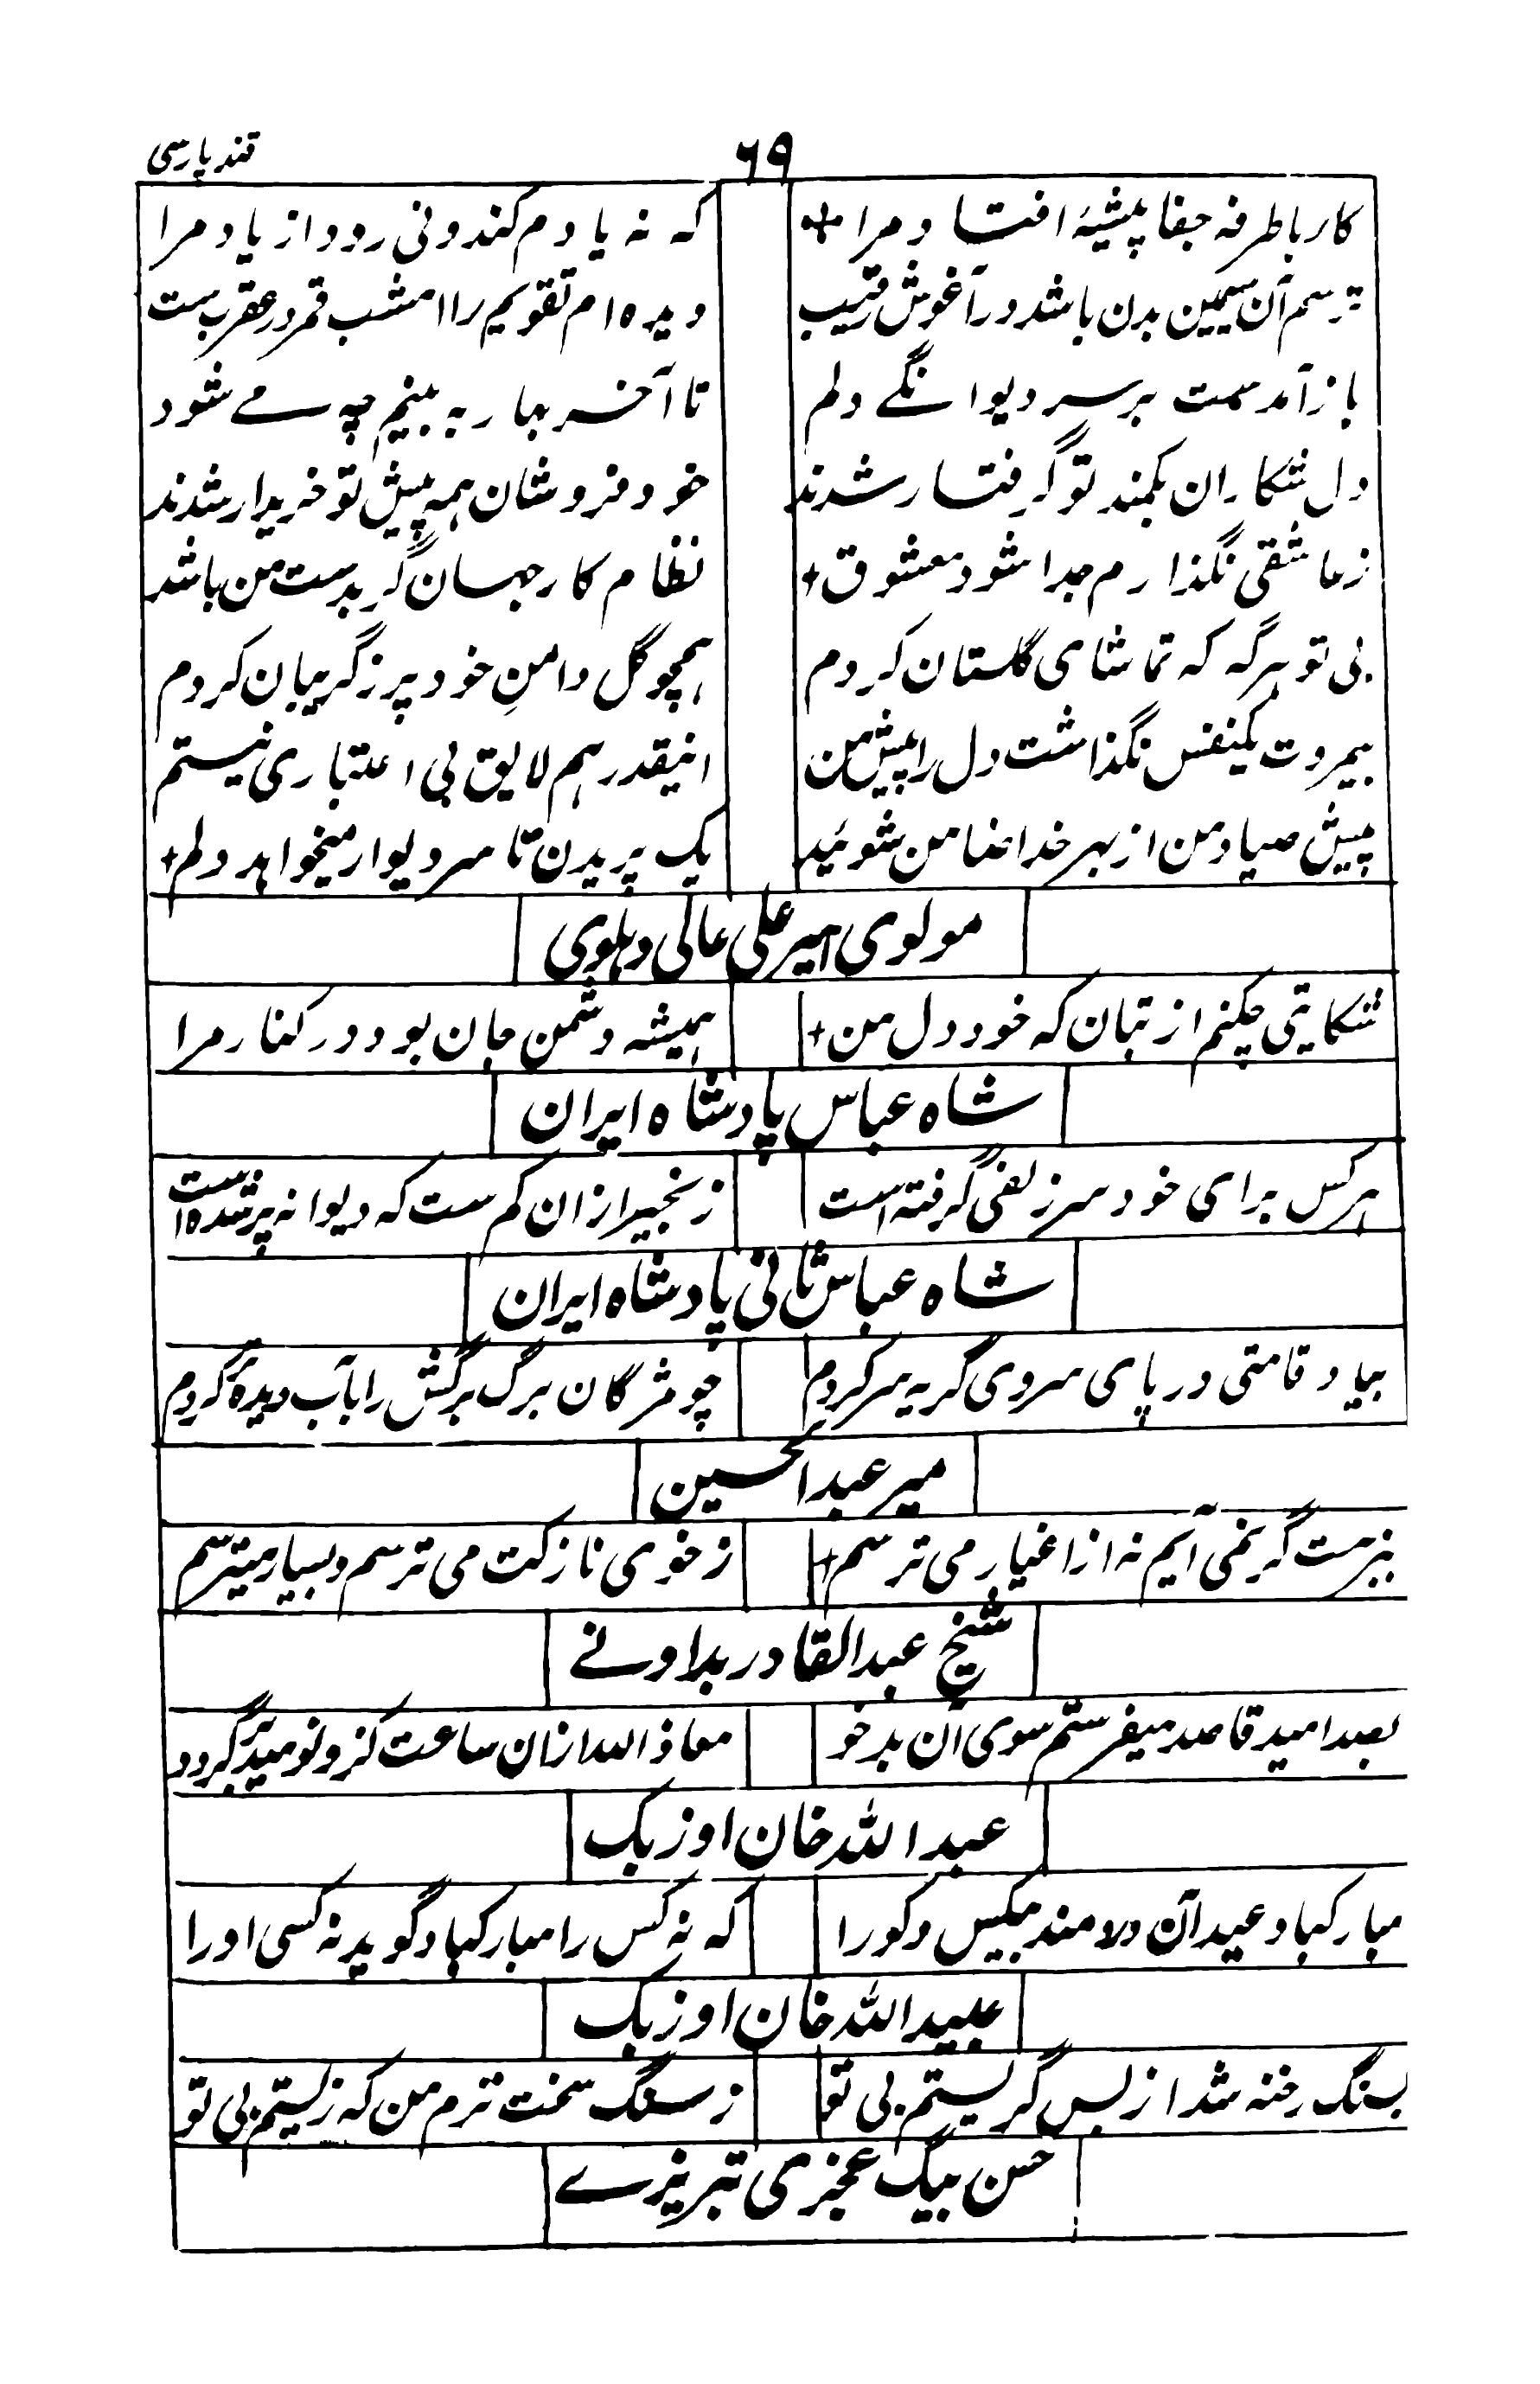 ۶۹ قند پارسی
کار باطرفه جفا پیشیهٔ افتاد مرا + که نه یادم کند و نی رود از یاد مرا
ترسم آن سیمین بدن باشد در آغوش رقیب دیده ام تقویم را امشب قمر در عقرب ست
باز آمدست بر سر دیوانگے دلم تا آخر بهار به بینم چه مے شود
دل شکاران بکمند تو گرفتار شدند خود فروشان همه پیش تو خریدار شدند
ز عاشقی نگذارم جدا شود معشوق + نظام کار جهان گر بدست من باشد
بی تو هرگه که تماشای گلستان کردم همچو گل دامنِ خود پر ز گریبان کردم
بیمروت یکنفس نگذاشت دل را پیش من اینقدر هم لایق بی اعتباری نیستم
پیش صیاد من از بهر خدا ضامن شوئید یک پریدن تا سر دیوار میخواهد دلم +
مولوی امیر علی عالی دهلوی
شکایتی چکنم از بتان که خود دل من + همیشه دشمن جان بود در کنار مرا
شاه عباس پادشاه ایران
هر کس برای خود سر زلفی گرفته است زنجیر ازان کم ست که دیوانه پر شده است
شاه عباس ثانی پادشاه ایران
بیاد قامتی در پای سروی گریه سر کردم چو مژگان برگ برگش را بآب دیده تر کردم
میر عبدالحسین
ببزمت گر نمی آیم نه از اغیار می ترسم + ز خوی نازکت می ترسم و بسیار میترسم
شیخ عبدالقادر بداونے
بصد امید قاصد میفرستم سوی آن بدخو معاذ الله ازان ساعت کزو نومید برگردد
عبد الله خان اوزبک
مبارکباد عید آن دردمند بیکس و کو را که نه کس را مبارکباد گوید نه کسی او را
عبید الله خان اوزبک
بسنگ رخنه شد از بس گریستم بی تو ز سنگ سخت ترم من که زیستم بی تو
حسن بیگ عجزی تبریزے